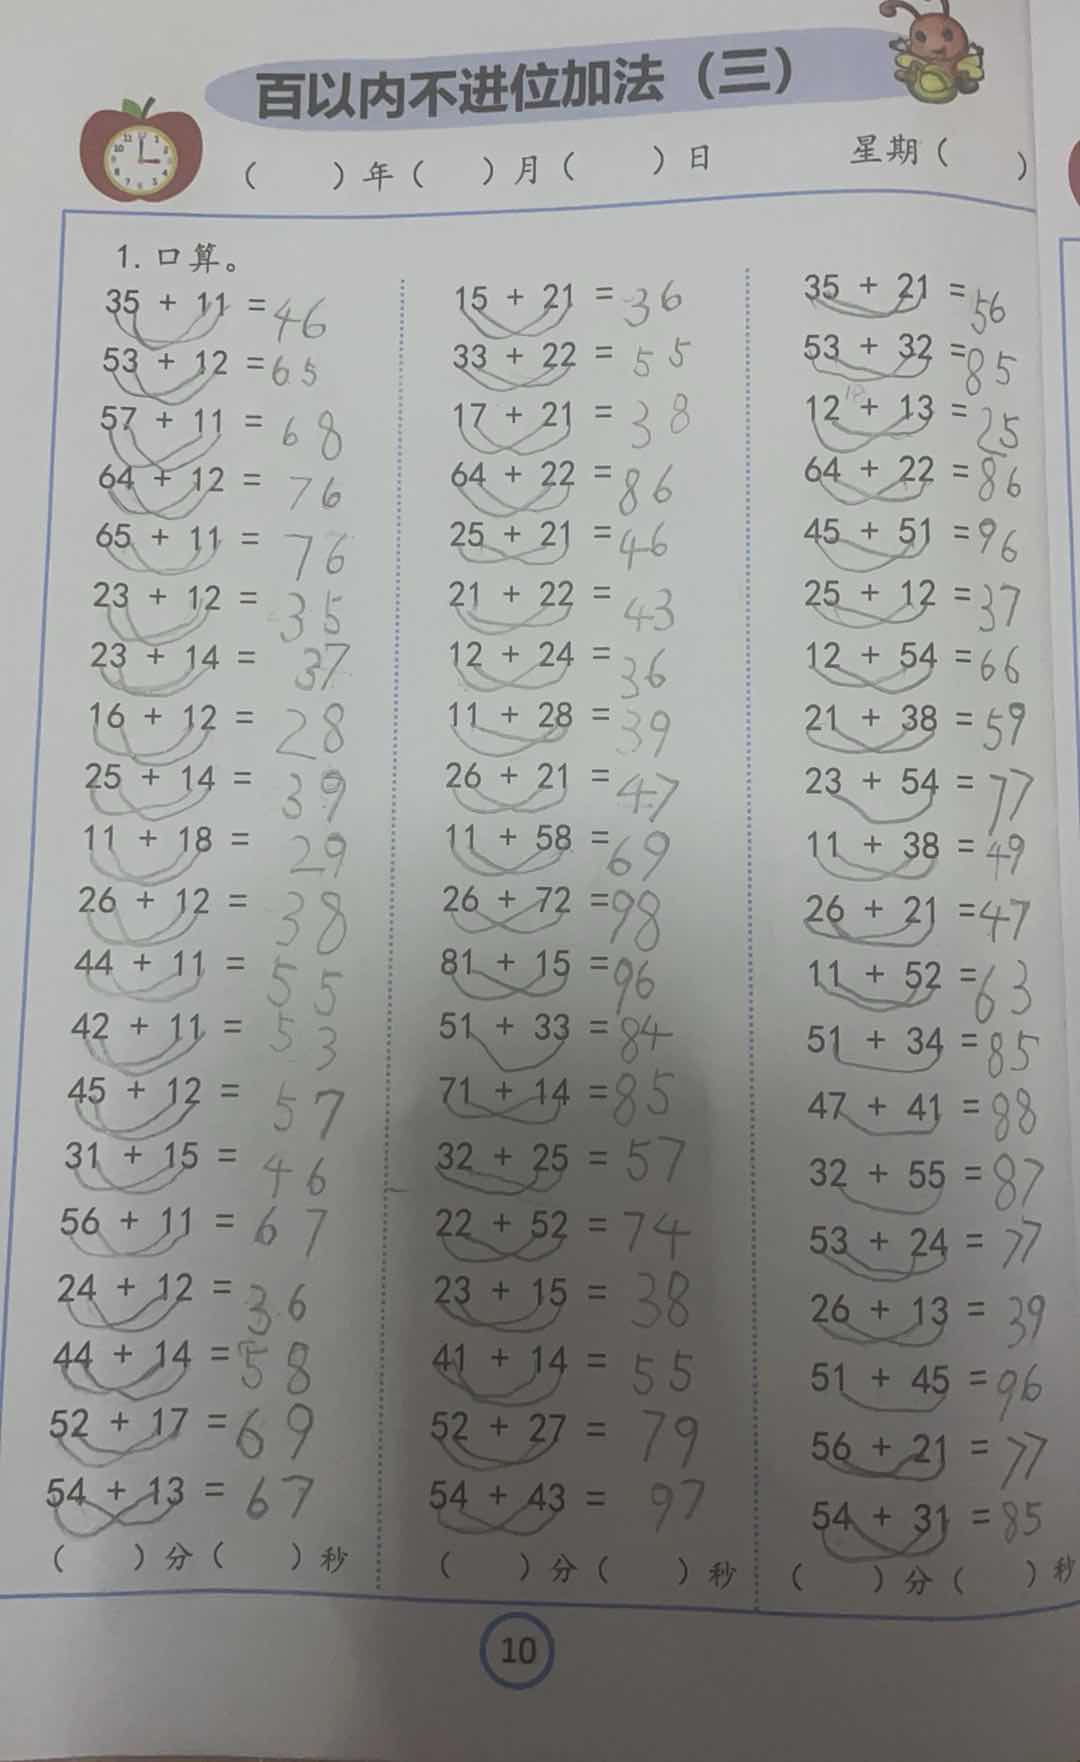 百以内不进位加法（三）
（　）年（　）月（　）日　星期（　）
1. 口算。
35 + 11 = 46
53 + 12 = 65
57 + 11 = 68
64 + 12 = 76
65 + 11 = 76
23 + 12 = 35
23 + 14 = 37
16 + 12 = 28
25 + 14 = 39
11 + 18 = 29
26 + 12 = 38
44 + 11 = 55
42 + 11 = 53
45 + 12 = 57
31 + 15 = 46
56 + 11 = 67
24 + 12 = 36
44 + 14 = 58
52 + 17 = 69
54 + 13 = 67
（　）分（　）秒
15 + 21 = 36
33 + 22 = 55
17 + 21 = 38
64 + 22 = 86
25 + 21 = 46
21 + 22 = 43
12 + 24 = 36
11 + 28 = 39
26 + 21 = 47
11 + 58 = 69
26 + 72 = 98
81 + 15 = 96
51 + 33 = 84
71 + 14 = 85
32 + 25 = 57
22 + 52 = 74
23 + 15 = 38
41 + 14 = 55
52 + 27 = 79
54 + 43 = 97
（　）分（　）秒
35 + 21 = 56
53 + 32 = 85
12 + 13 = 25
64 + 22 = 86
45 + 51 = 96
25 + 12 = 37
12 + 54 = 66
21 + 38 = 59
23 + 54 = 77
11 + 38 = 49
26 + 21 = 47
11 + 52 = 63
51 + 34 = 85
47 + 41 = 88
32 + 55 = 87
53 + 24 = 77
26 + 13 = 39
51 + 45 = 96
56 + 21 = 77
54 + 31 = 85
（　）分（　）秒
10